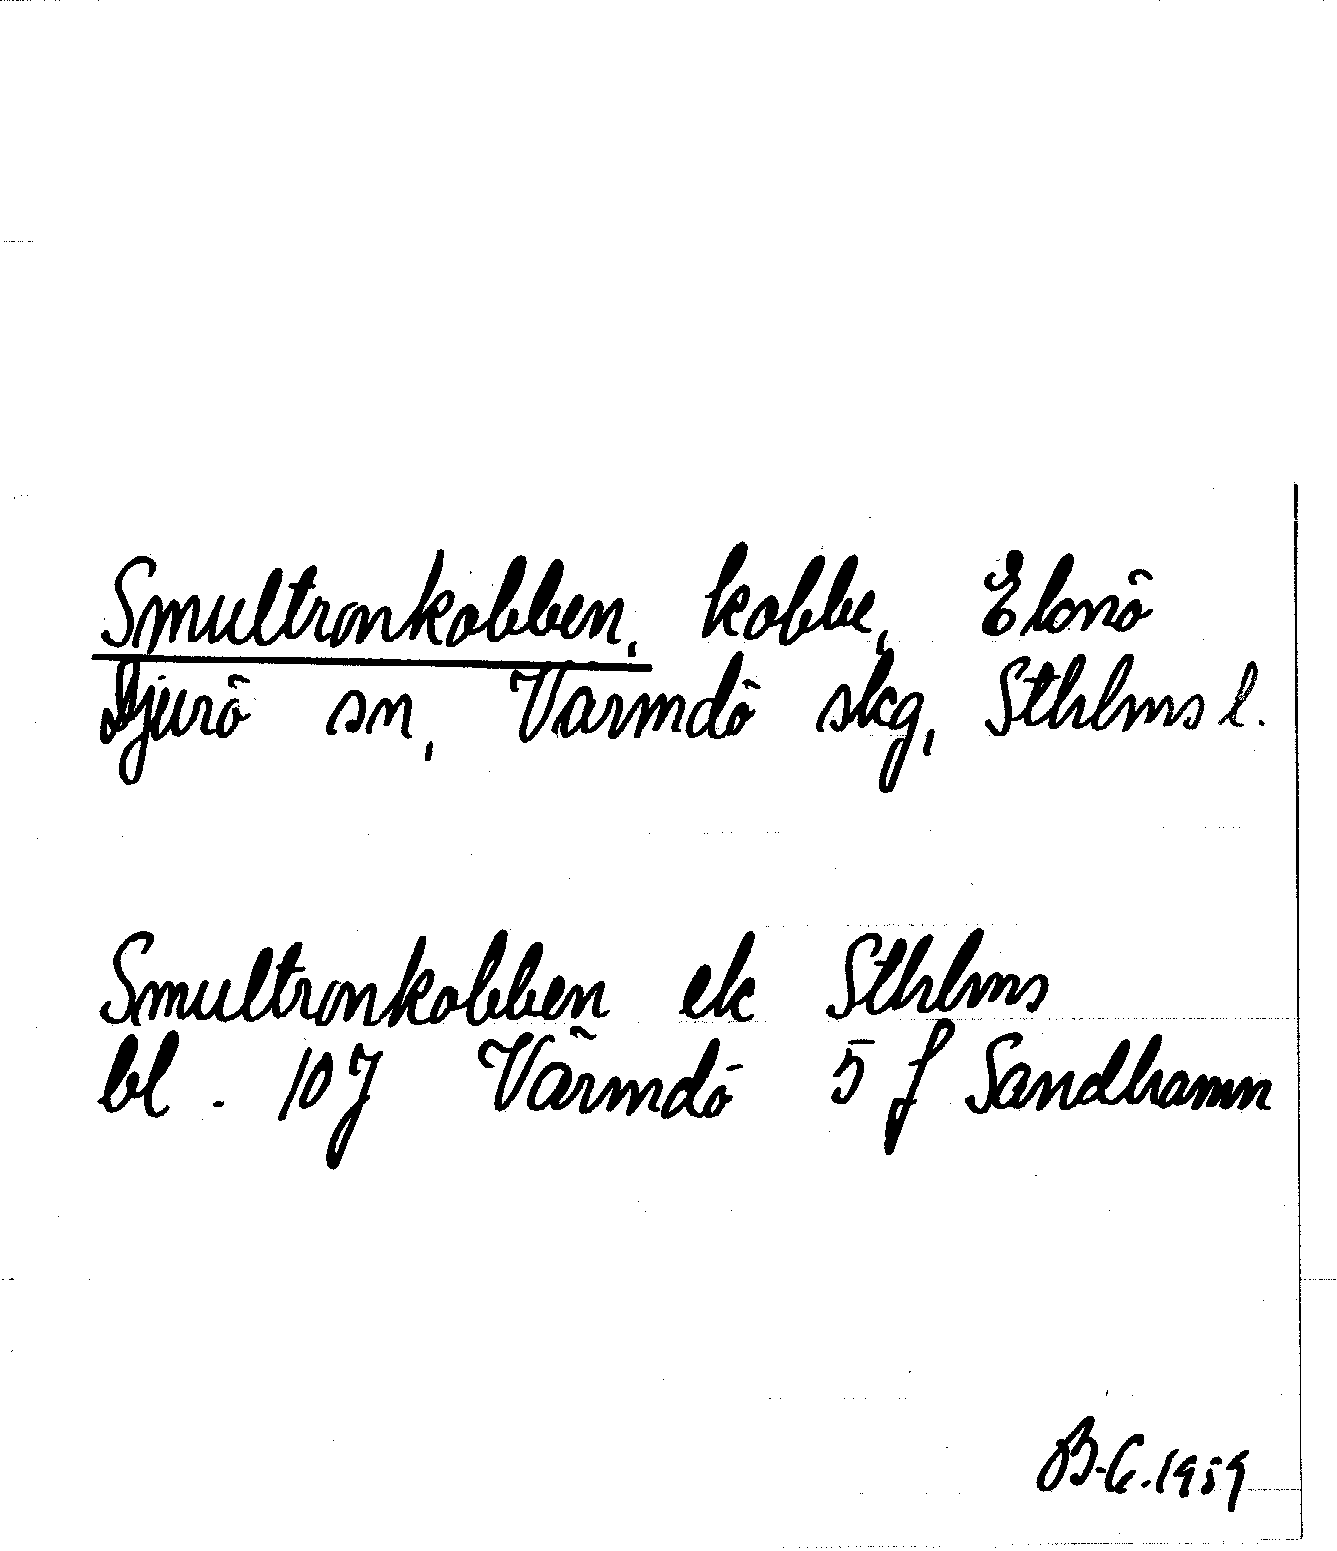 Smultronkobben, kobbe, Eknö
Djurö sn, Värmdö skg, Sthlms l.
Smultronkobben ek Sthlms
bl. 107 Värmdö 5 f Sandhamn
B-C. 1959